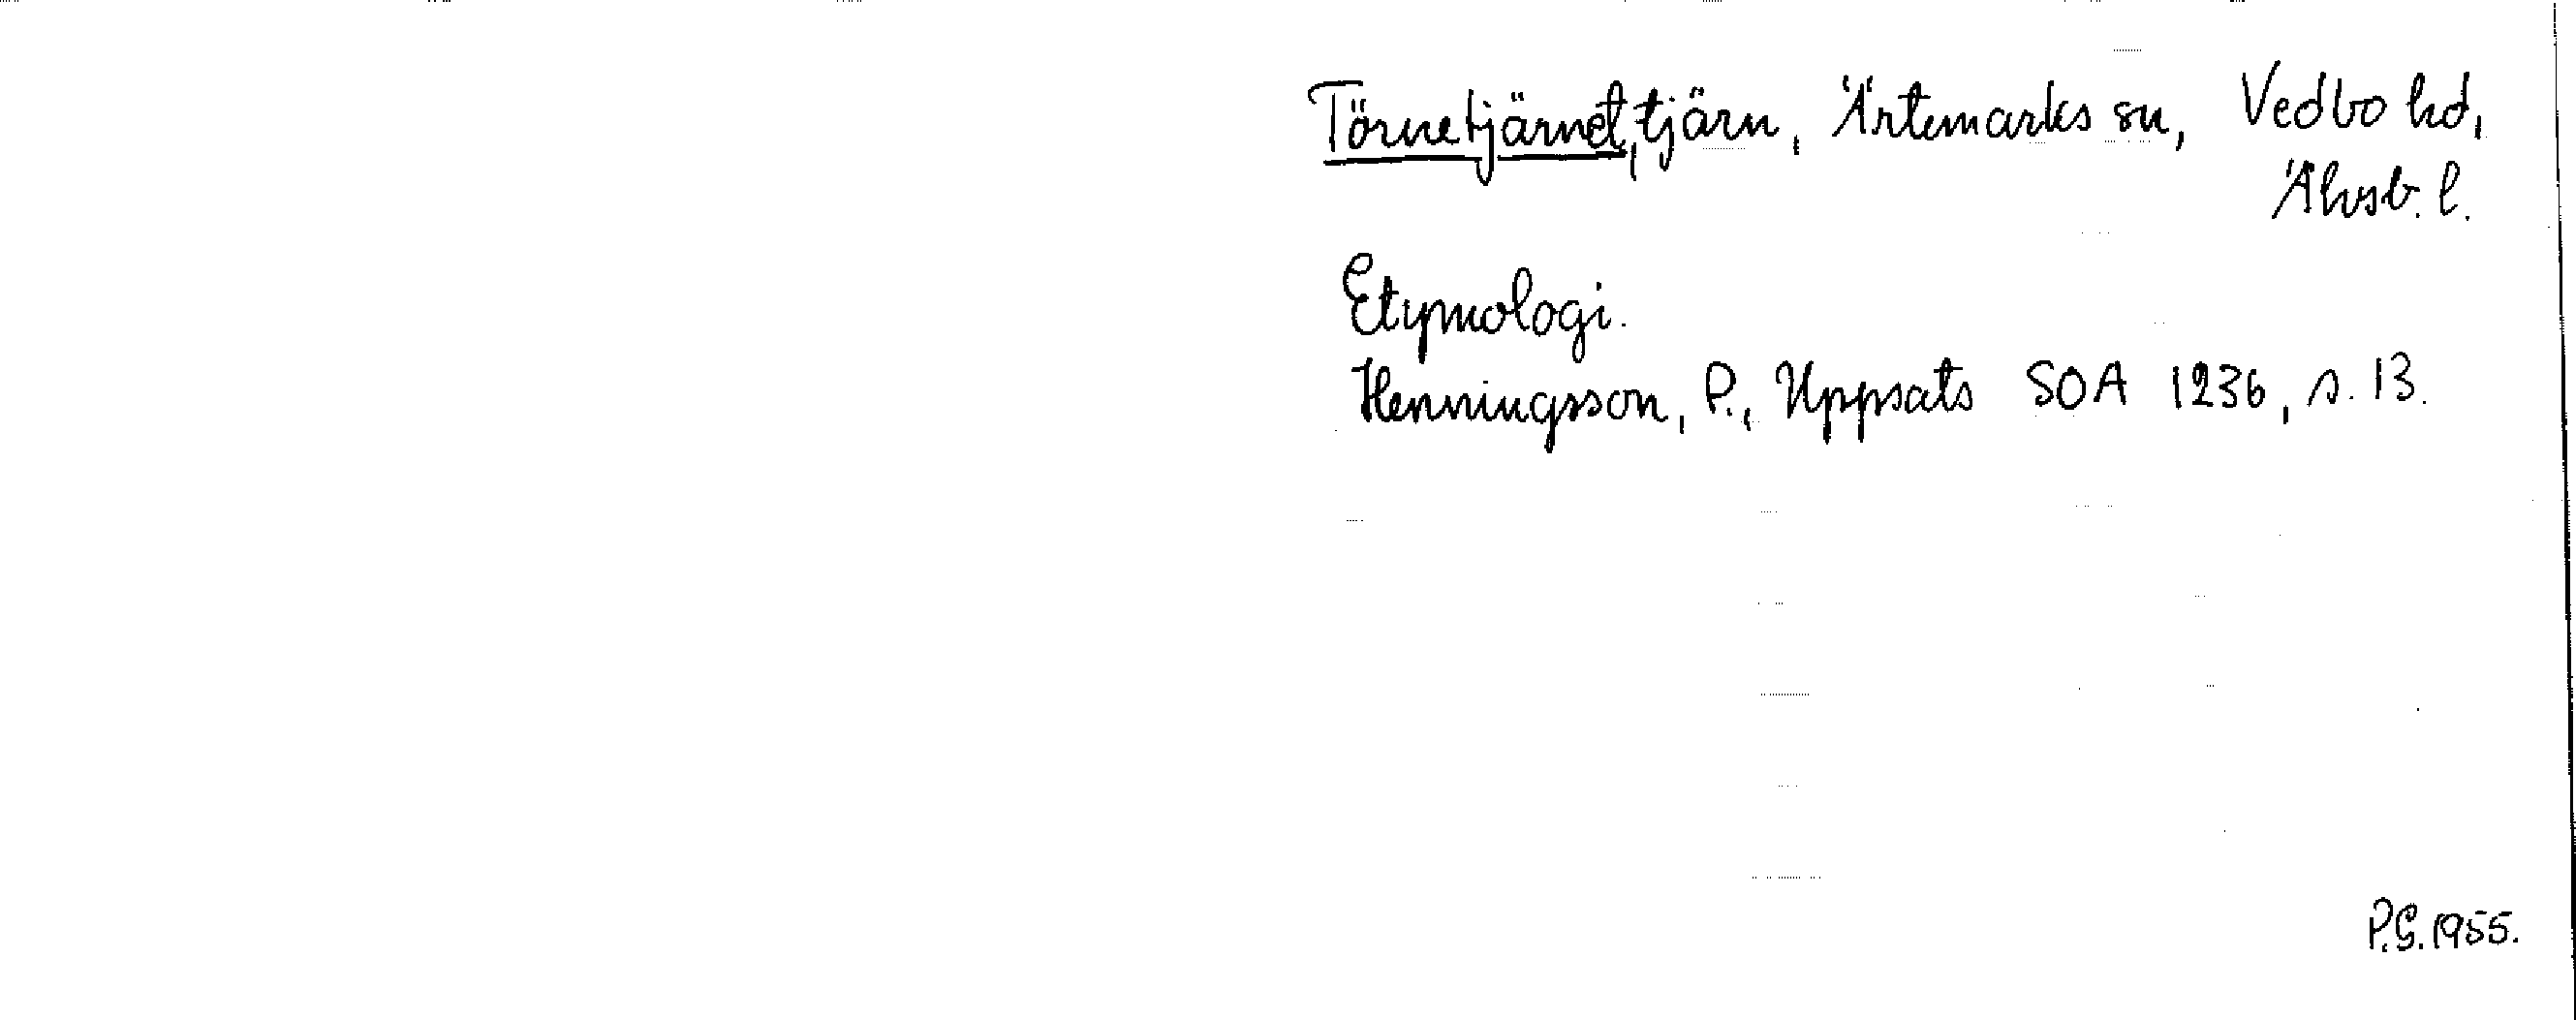 Törnetjärnet, tjärn, Ärtemarks sn, Vedbo hd,
Älvsb. l.
Etymologi.
Henningsson, P., Uppsats SOA 1236, s. 13.
P.G. 1955.